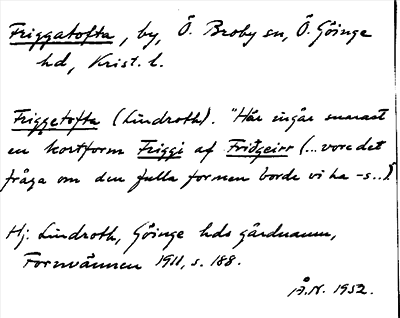 Friggatofta, by, Ö. Broby sn, Ö. Göinge
hd, Krist. l.
Friggetofta (Lindroth). "Här ingår snarast
en kortform Friggi af Friðgeirr (...vore det
fråga om den fulla formen borde vi ha -s..)
Hj: Lindroth, Göinge hds gårdnamn,
Fornvännen 1911, s. 188.
Å.N. 1952.